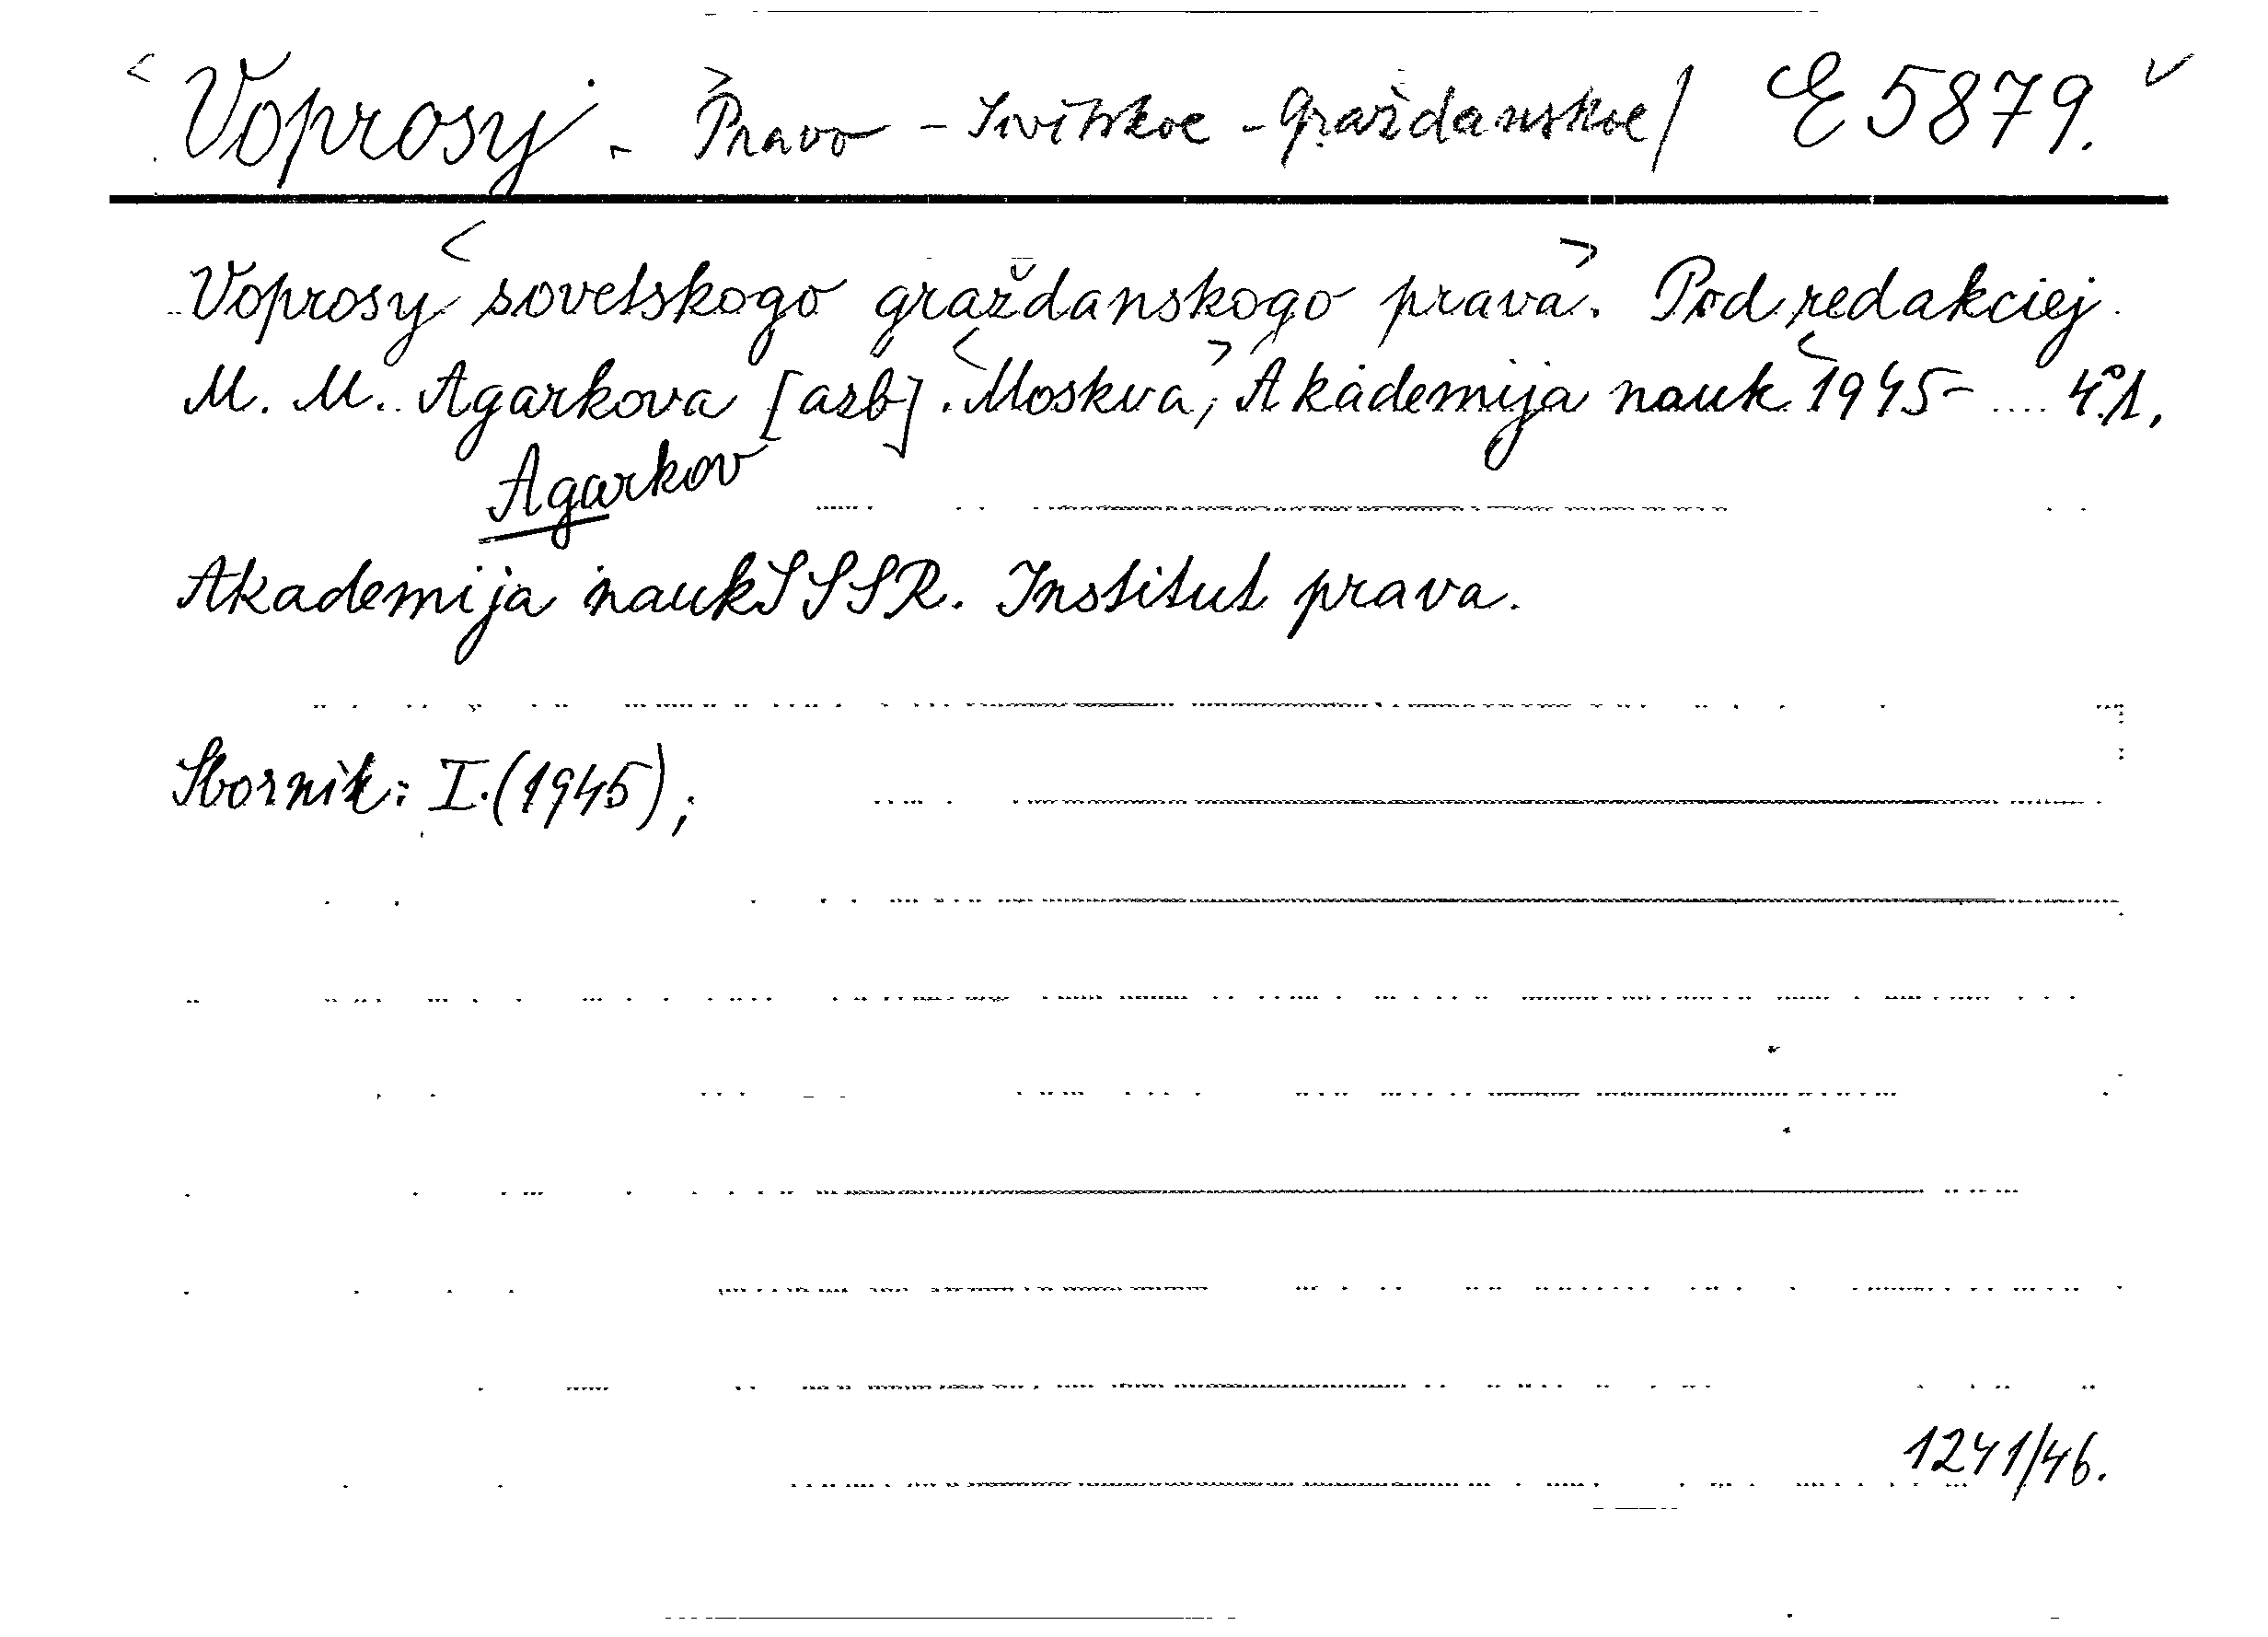 < Voprosy - Pravo > - Sovětskoe - Graždanskoe / E 5879. v
Voprosy < sovetskogo graždanskogo prava >. Pod redakciej
M. M. Agarkova [azb]. < Moskva, > Akademija nauk < 1945- .... 4°. 1.
Agarkov
Akademija nauk SSSR. Institut prava.
Sbornik: I. (1945);
1241/46.